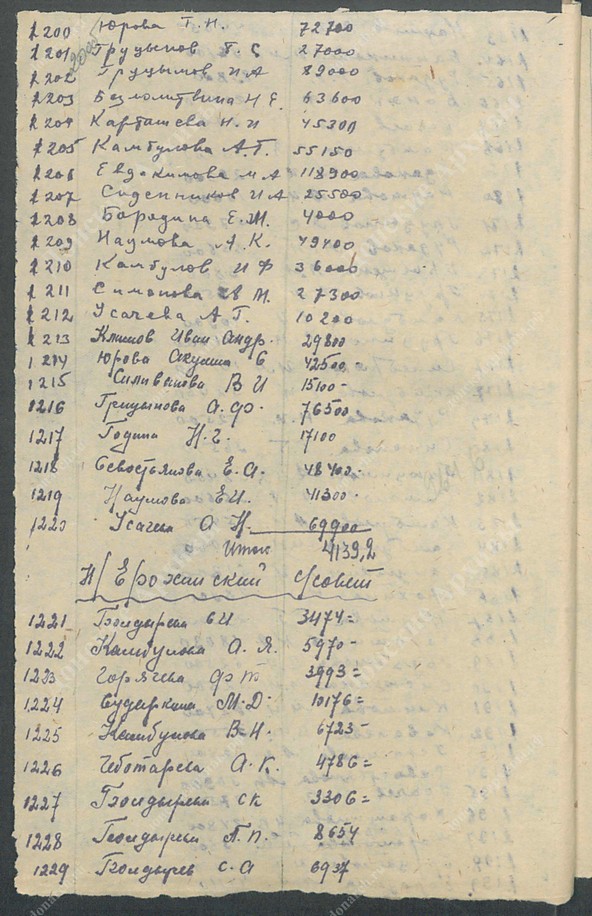 1200 Юрова Т. Н. 72700
1201 Груцынов Г. С 27000
1202 Груцынов И А 89000
1203 Безмолитвина Н Е. 63600
1204 Карташева Н. И 45300
1205 Камбулова А. Г. 55150
1206 Евдокимова М А 118900
1207 Сиденников И А 25500
1208 Бородина Е. М. 4000
1209 Наумова А. К. 49400
1210 Камбулов И Ф 36000
1211 Симонова М. 27300
1212 Усачева А. Г. 10200
1213 Климов Иван Андр. 29800
1214 Юрова Акулина С 42500=
1215 Селиванова В И 15100-
1216 Грицынова А. Ф. 76500
1217 Година Н. Г. 17100
1218 Севостьянова Е. А. 48400-
1219 Наумова Е И. 41300-
1220 Усачева О Н. 69900
Итог 4139,2
Н/Ерохинский с/совет
1221 Болдырева Е И 3474=
1222 Камбулова А. Я. 5970-
1223 Горячева Ф Т 3993=
1224 Сударкина М. Д. 10176=
1225 Камбулова В. И. 6723-
1226 Чеботарева А. К. 4786=
1227 Болдырева С К 3306=
1228 Болдырева П. П. 8654
1229 Болдырев С. А 6937